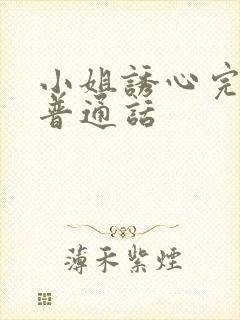 小姐誘心完
普通話
薄禾紫煙